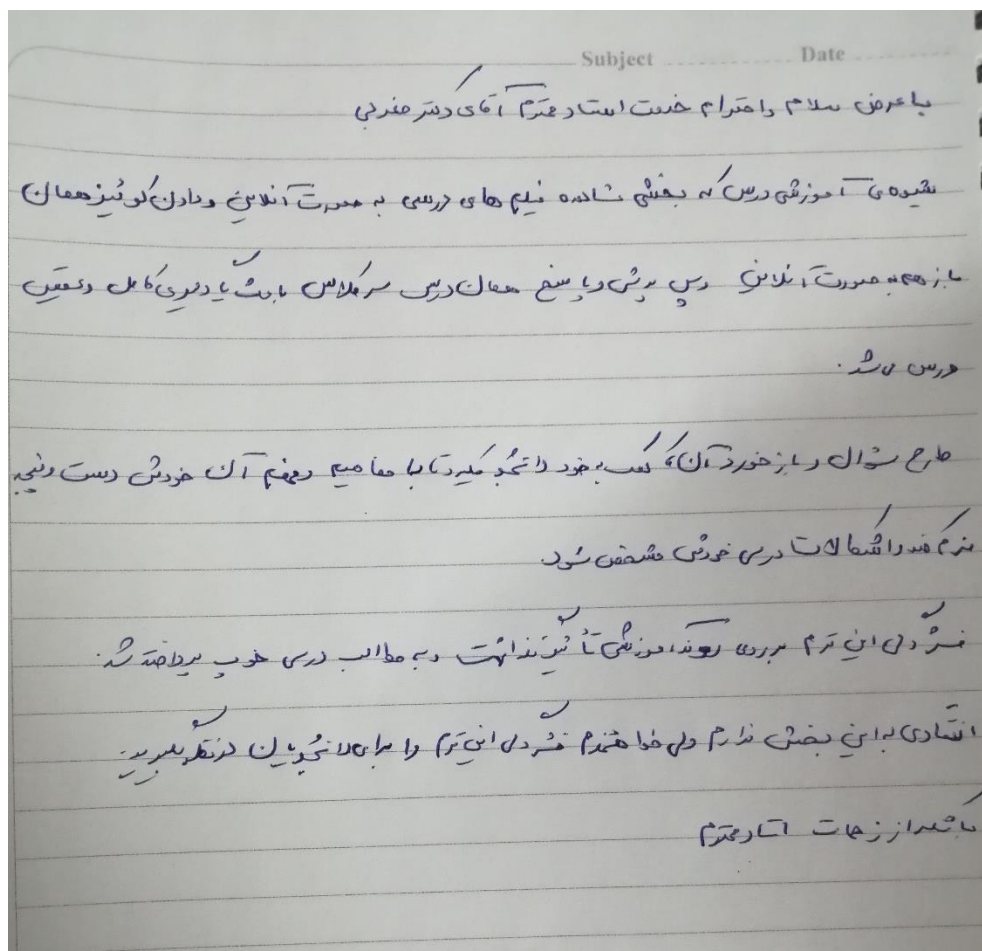 Subject ............... Date ...............
با عرض سلام و احترام خدمت استاد محترم آقای دکتر
شیوه ی آموزشی درس که بخشی فیلم های درسی به صورت آنلاین و دادن کوئیز همان
باز هم به صورت آنلاین و سپس پرسش و پاسخ همان درس سر کلاس باعث یادگیری کامل و عمیق
درس می شد.
طرح سوال و بازخورد آن کمک به خود دانشجو میکرد تا با مفاهیم و فهم آن خودش دست و پنجه
نرم کند و اشکالات درسی خودش مشخص شود.
فشردگی این ترم بر روی روند آموزشی تأثیری نداشت و به مطالب درسی خوب پرداخته شد.
انتقادی به این بخش ندارم ولی خواهشمندم فشردگی این ترم را برای دانشجویان در نظر بگیرید.
با تشکر از زحمات استاد محترم